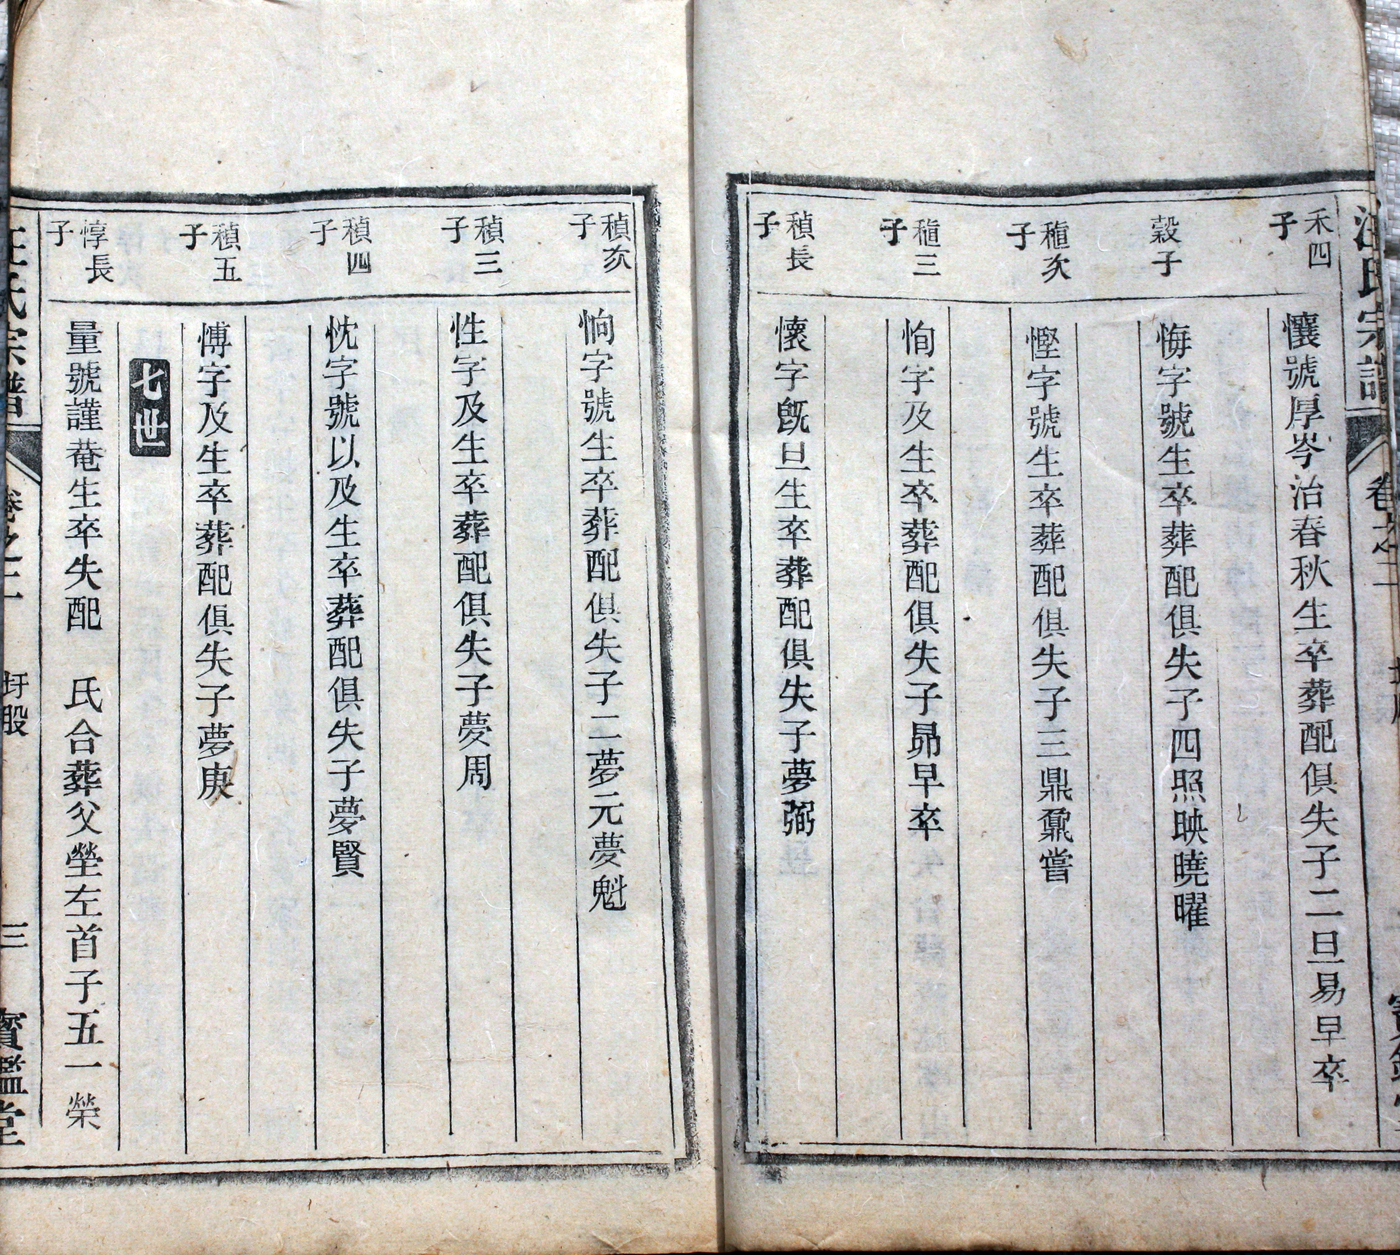 汪氏宗譜 卷之二
禾四子
懷號厚岑治春秋生卒葬配俱失子二旦易早卒
穀子
悔字號生卒葬配俱失子四照映曉曜
穜次子
慳字號生卒葬配俱失子三鼎鼐嘗
穜三子
恂字及生卒葬配俱失子昴早卒
稹長子
懐字旣旦生卒葬配俱失子夢弼
稹次子
恦字號生卒葬配俱失子二夢元夢魁
稹三子
性字及生卒葬配俱失子夢周
稹四子
忱字號以及生卒葬配俱失子夢賢
稹五子
愽字及生卒葬配俱失子夢庚
七世
惇長子
量號謹菴生卒失配 氏合葬父塋左首子五一榮
汪氏宗譜 卷之二 圩股 三 寶鑑堂